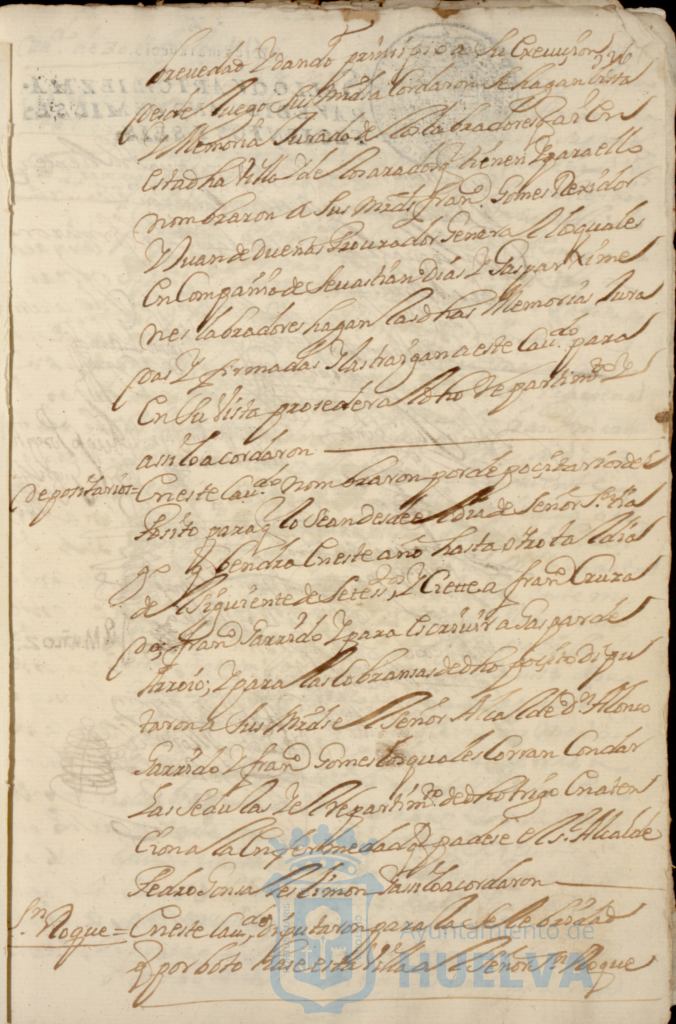 brevedad Y dando prinsipio a su Execuzion
desde luego sus mrds acordaron se hagan Vista
Memoria Jurada de los labradores q ay en
esta dha Villa de los arados q tienen Y para ello
nombraron a sus mrds fran.co Gomes Rexidor
Y Juan de dueñas Procurador General los quales
En Compañia de Sevastian Dias Y Gaspar Xime
nes labradores hagan las dhas Memorias Jura
das Y firmadas Y las traigan a este Cau.do para
En su Vista proseder al dho Repartim.to Y
assi lo acordaron
Depositarios = En este Cau.do nombraron por depocitarios del
Posito para q lo sean desde el dia de Señor S.tia
go q bendra En este año hasta otro tal dia
del siguiente de setes.tos Y siette a fran.co Cruza
do, fran.co Garrido Y para escriuir a Gaspar de
Y para las cobransas de dho pocito Dipu
taron a sus Mrds el Señor Alcalde D.n Alonso
Garrido Y fran.co Gomes los quales Corran Con dar
Las sedulas Y el Repartim.to de dho trigo En aten
Cion a la Enfermedad q padese el s.r Alcalde
Pedro Gonsales Limon Y assi lo acordaron
S.n Roque = En este Cau.do, diputaron para la selebridad
q por boto hase esta Villa al Señor S.n Roque
Ayuntamiento de
HUELVA